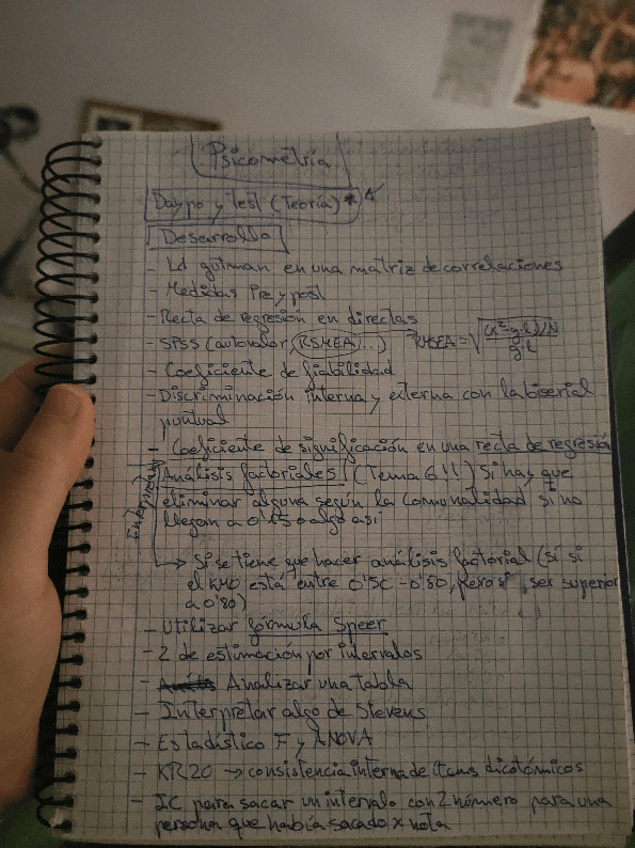 Psicometría
Daypo y Test (Teoría) *
Desarrollo
- Ld gutman en una matriz de correlaciones
- Medidas Pre y post
- Recta de regresión en directas
- SPSS (autovalor, RSMEA, ...) → RMSEA = √
- Coeficiente de fiabilidad
- Discriminación interna y externa con la biserial
puntual
- Coeficiente de significación en una recta de regresión
Análisis factoriales (Tema 6!!) Si hay que
eliminar alguna según la comonalidad si no
llegan a 0'50 o algo así
→ Si se tiene que hacer análisis factorial (sí si
el KMO está entre 0'50 - 0'80, pero sí ser superior
a 0'80)
- Utilizar fórmula Speer
- 2 de estimación por intervalos
- Analizar una tabla
- Interpretar algo de Stevens
- Estadístico F y ANOVA
- KR20 → consistencia interna de ítems dicotómicos
- IC para sacar un intervalo con 2 número para una
persona que había sacado x nota